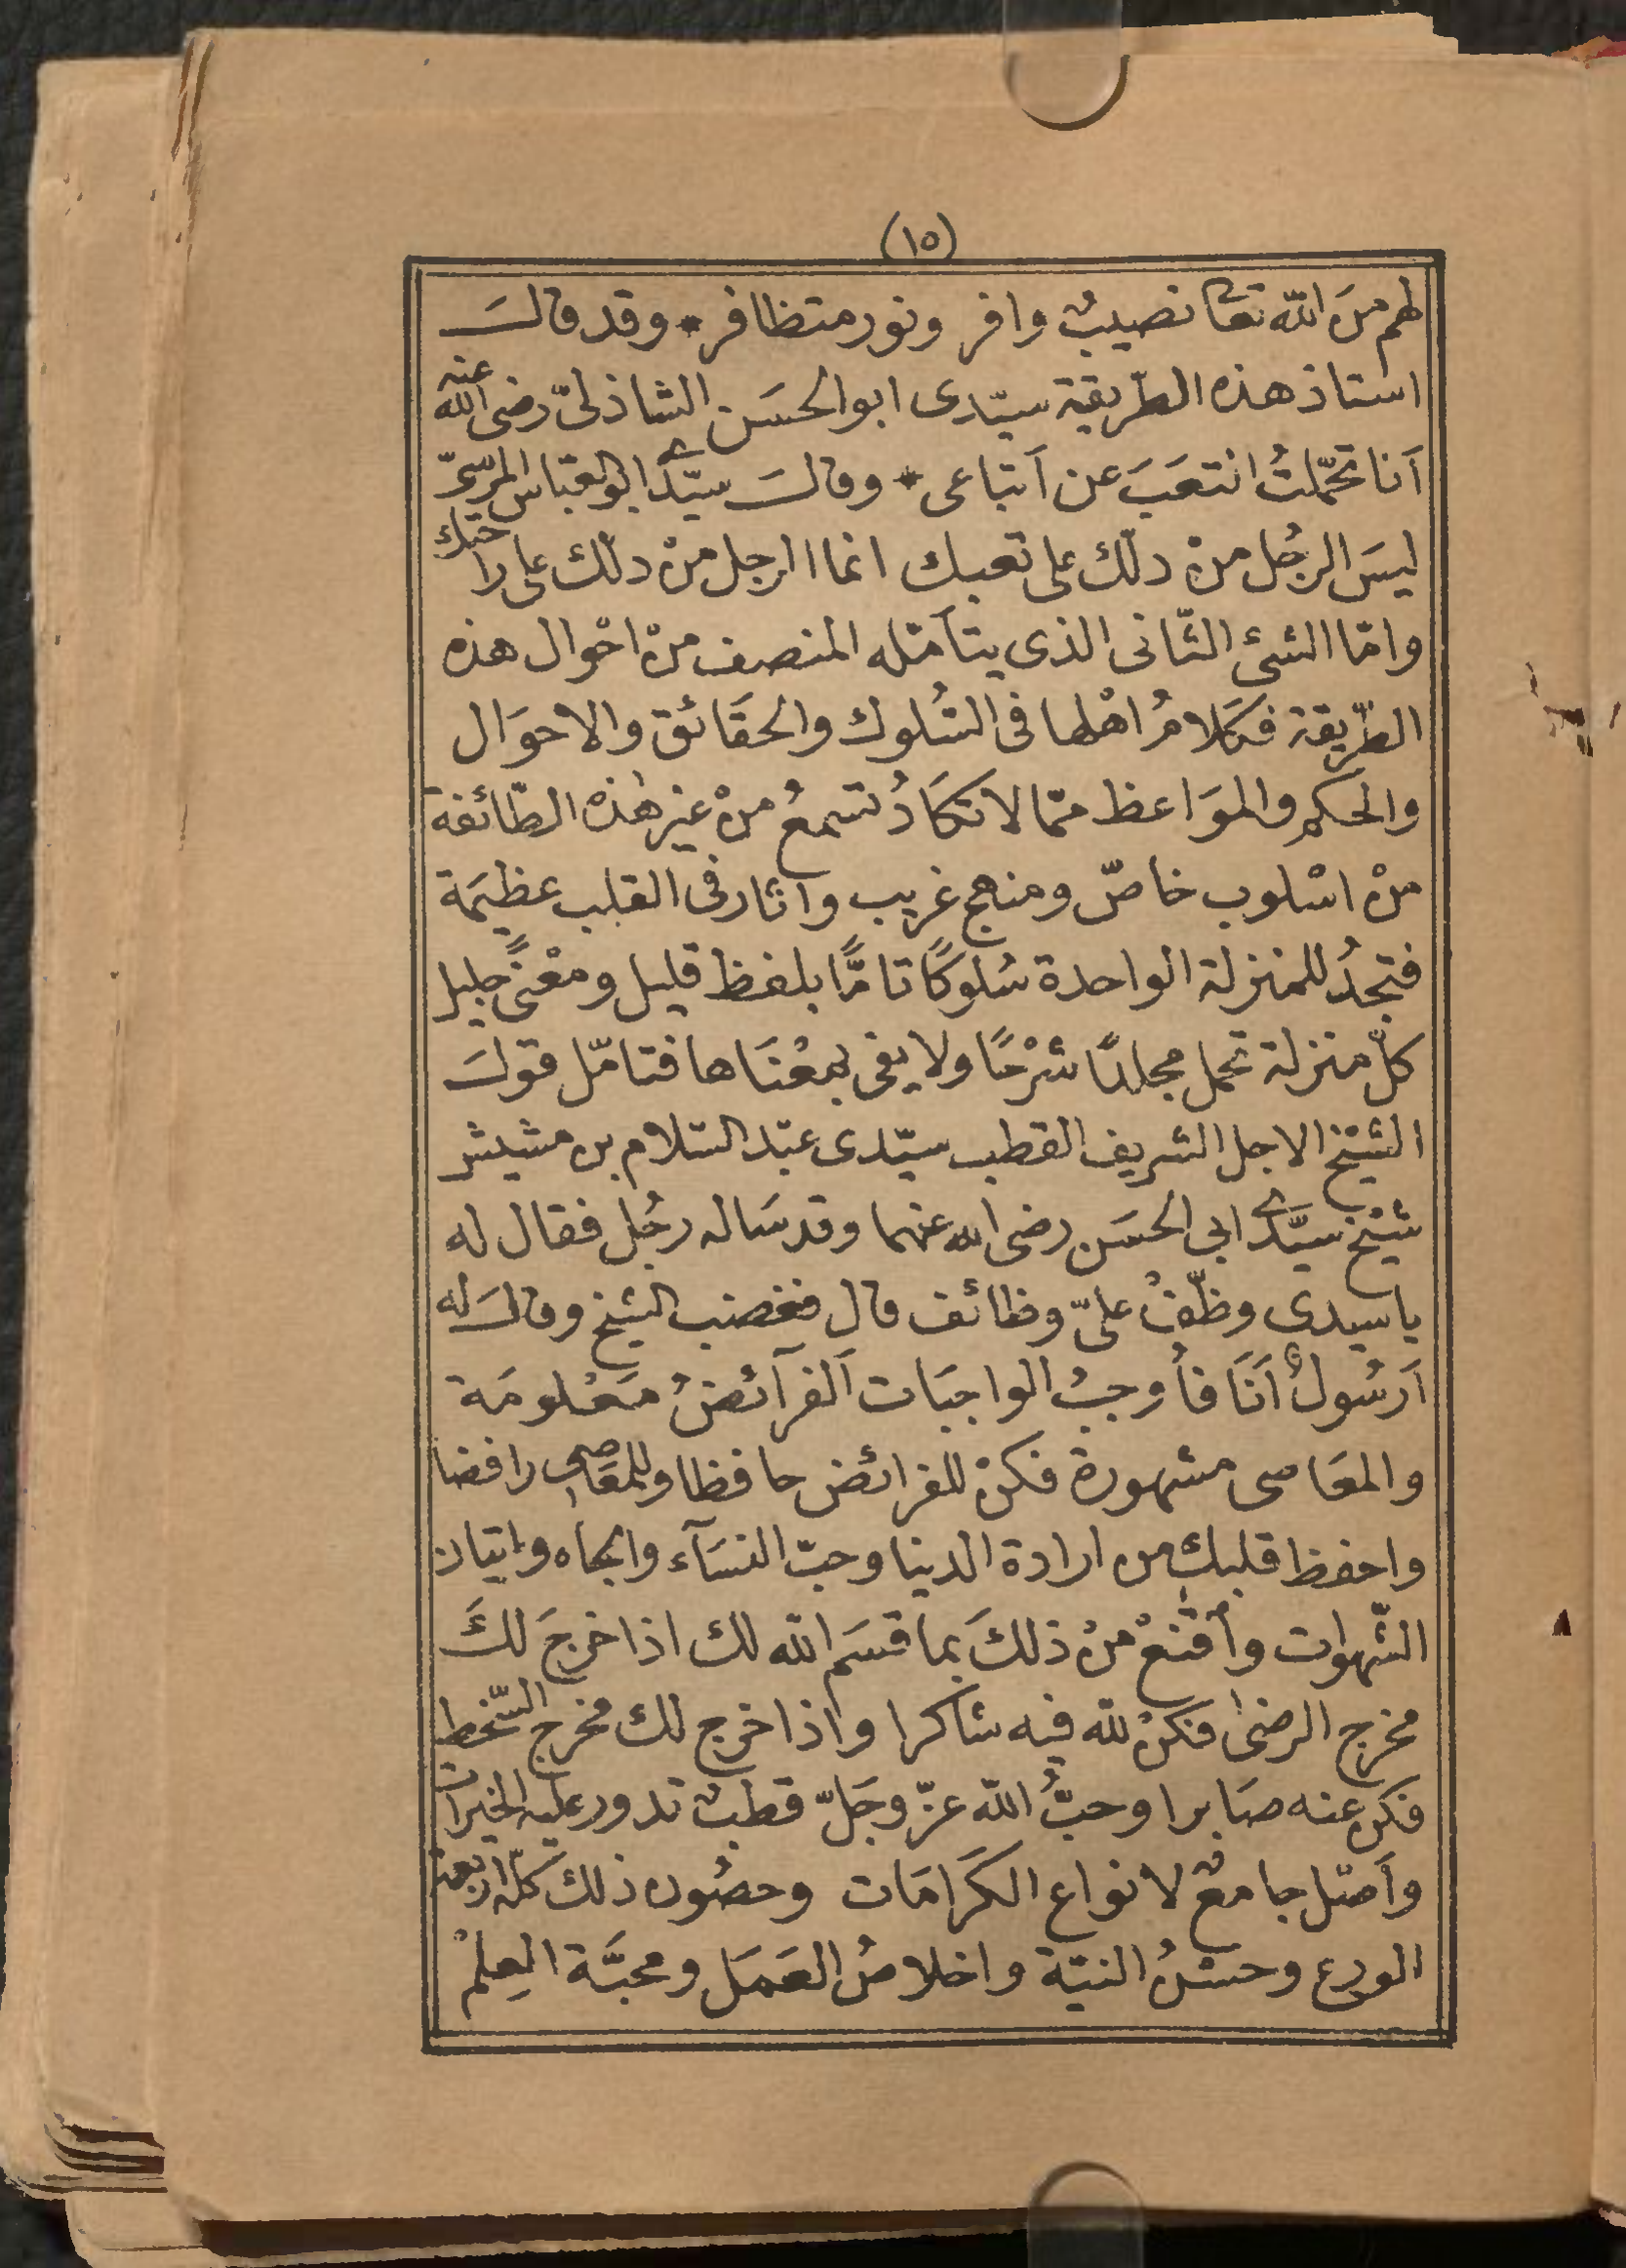 (١٥)
لهم مِنَ اللّه تعالى نصيبٌ وافر ونور متظافر * وقد قالَ
استاذ هذه الطّريقة سيّدى ابوالحسَن الشاذلىّ رضى اللّه عنه
اَنا تحمّلتُ التعَبَ عن اَتباعى * وقالَ سيّدى ابوالعبّاس المرسىّ
ليسَ الرجُل منْ دلّك على تعبك انما الرجل منْ دلّك على راحتك
وامّا الشئ الثّانى الذى يتأمّله المنصف منْ احْوال هذه
الطّريقة فكَلامُ اهْلها فى السُّلوك والحقَائق والاحوَال
والحكم والموَاعظ ممّا لا تكَادُ تسمعُ منْ غير هٰذه الطّائفة
منْ اسْلوب خاصّ ومنهج غريب واثار فى القلب عظيمَة
فتجدُ للمنزلة الواحدة سُلوكًا تامًّا بلفظ قليل ومعْنًى جليل
كلّ منزلة تحمل مجلدًا شرْحًا ولا يفى بمعْنَاها فتامّل قولَ
الشيْخ الاجل الشريف القطب سيّدى عبْد السّلام بن مشيش
شيْخ سيَّدى ابى الحسَن رضى الله عنهما وقد سَاله رجُل فقال له
ياسيدى وظّفْ علىّ وظائف قال فغضب الشيخ وقالَ له
اَرسُولٌ اَنَا فأُوجبُ الواجبَات اَلفرآئضُ مَعْلومَة
والمعَاصى مشهورة فكنْ للفرائض حافظا وللمعَاصى رافضا
واحفظ قلبك من ارادة الدنيا وحبّ النسَآء والجاه وإتيان
الشّهوات وأقنعْ منْ ذلكَ بما قسَم اللّه لك اذا خرجَ لكَ
مخرج الرضىٰ فكنْ للّه فيه شاكرا واذا خرج لك مخرج السّخط
فكن عنه صَابرا وحبُّ اللّه عزّ وجَلّ قطبٌ تدور عليه الخيرات
وأصْل جامعٌ لانواع الكرَامَات وحصُون ذلكَ كلّه اربعة
الورع وحسْنُ النيّة واخلاصُ العَمَل ومحبَّة العِلمْ